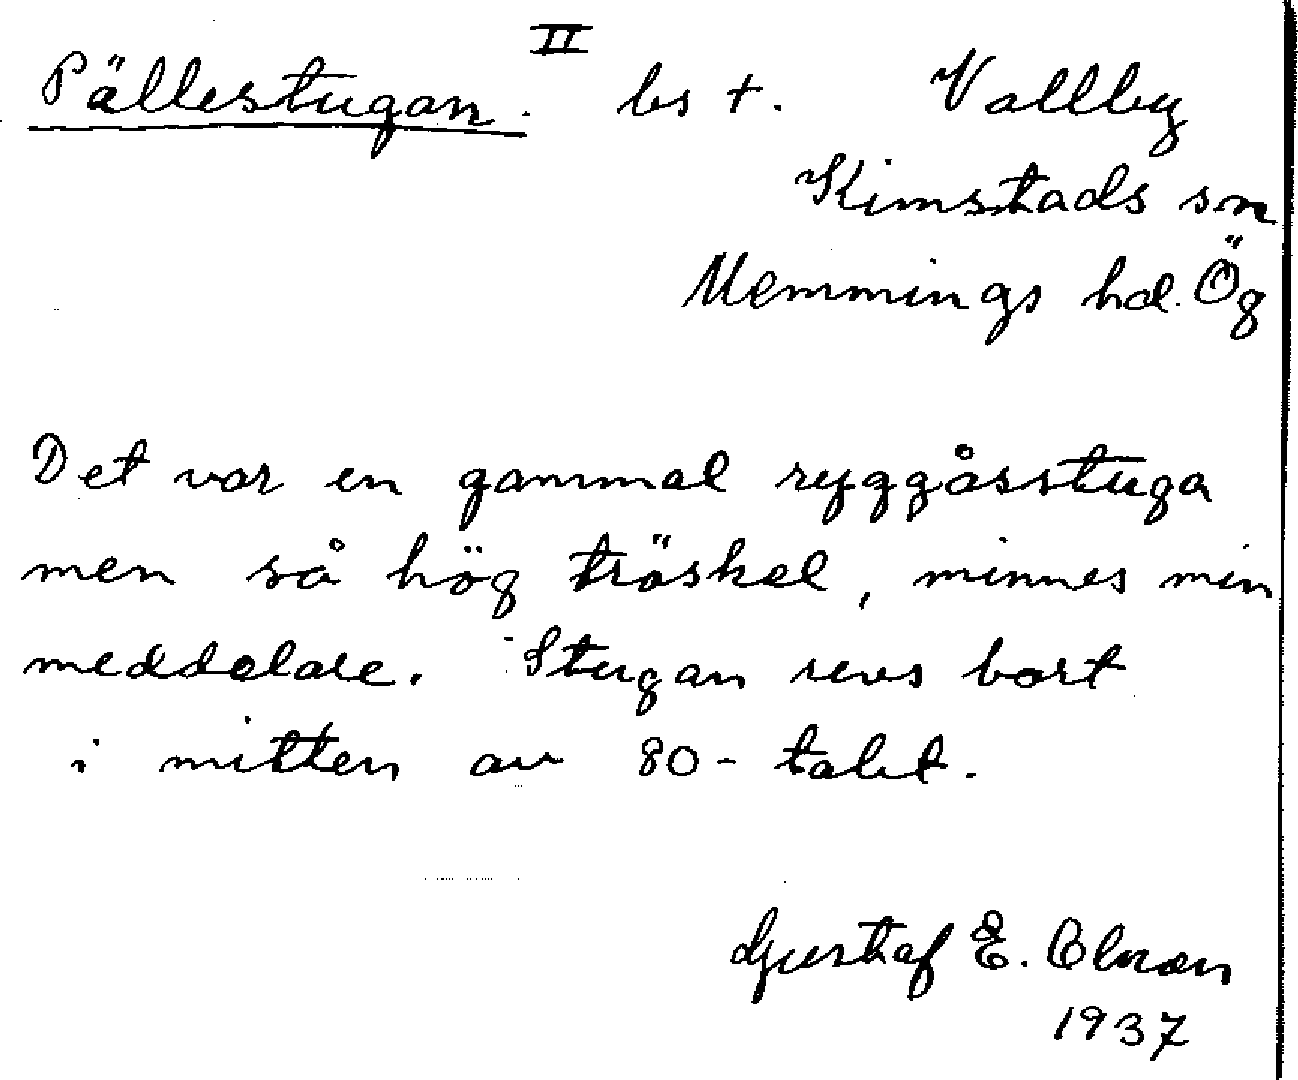 II
Pällestugan. bs †. Vallby
Kimstads sn
Memmings hd. Ög
Det var en gammal ryggåsstuga
men så hög tröskel, minnes min
meddelare. Stugan revs bort
i mitten av 80-talet.
Gustaf E.
1937